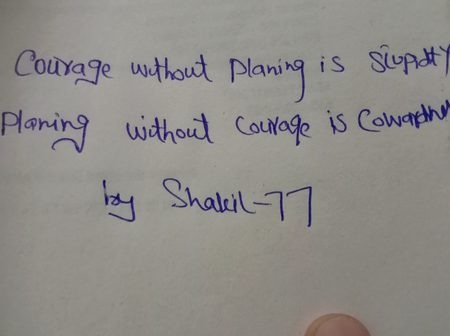 Courage without planing is stupidity
Planing without courage is
by Shakil-77